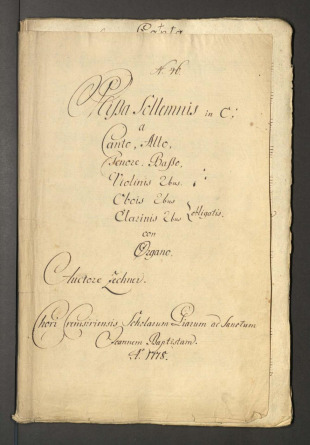 Canto
N. 46.
Missa Sollemnis in C;
a
Canto, Alto,
Tenore, Basso,
Violinis 2bus.
Obois 2bus
Clarinis 2bus obligatis.
con
Organo.
Auctore Zechner.
Chori Cremsiriensis Scholarum Piarum ad Sanctum
Joannem Baptistam.
Ao. 1778.